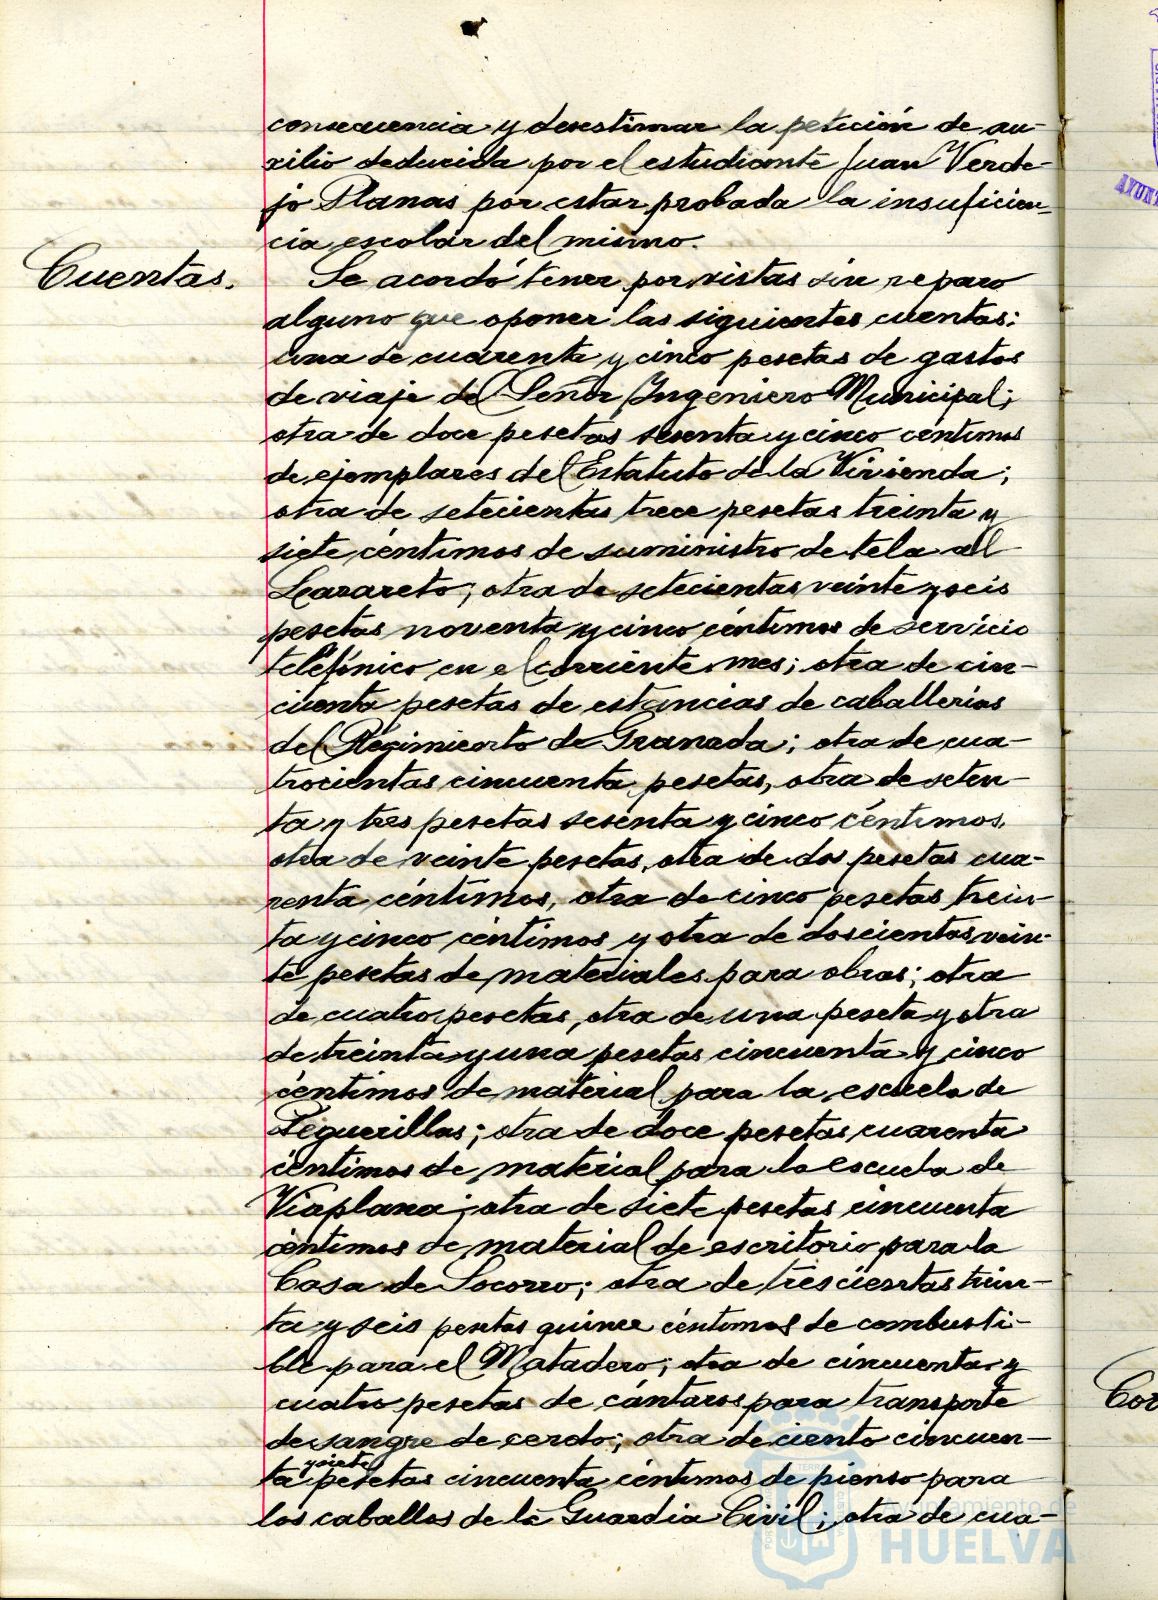 consecuencia y desestimar la petición de au-
xilio deducida por el estudiante Juan Verde-
jo Planas por estar probada la insuficien-
cia escolar del mismo.
Cuentas.
Se acordó tener por vistas sin reparo
alguno que oponer las siguientes cuentas:
una de cuarenta y cinco pesetas de gastos
de viaje del Señor Ingeniero Municipal;
otra de doce pesetas sesenta y cinco céntimos
de ejemplares del Estatuto de la Vivienda;
otra de setecientas trece pesetas treinta y
siete céntimos de suministro de tela al
Lazareto; otra de setecientas veinte y seis
pesetas noventa y cinco céntimos de servicio
telefónico en el corriente mes; otra de cin-
cuenta pesetas de estancias de caballerias
del Regimiento de Granada; otra de cua-
trocientas cincuenta pesetas, otra de seten-
ta y tres pesetas sesenta y cinco céntimos,
otra de veinte pesetas, otra de dos pesetas cua-
renta céntimos, otra de cinco pesetas trein-
ta y cinco céntimos y otra de doscientas vein-
te pesetas de materiales para obras; otra
de cuatro pesetas, otra de una peseta y otra
de treinta y una pesetas cincuenta y cinco
céntimos de material para la escuela de
Peguerillas; otra de doce pesetas cuarenta
céntimos de material para la escuela de
Viaplana; otra de siete pesetas cincuenta
céntimos de material de escritorio para la
Casa de Socorro; otra de trescientas trein-
ta y seis pesetas quince céntimos de combusti-
ble para el Matadero; otra de cincuenta y
cuatro pesetas de cántaros para transporte
de sangre de cerdo; otra de ciento cincuen-
y siete
ta pesetas cincuenta céntimos de pienso para
los caballos de la Guardia Civil; otra de cua-
Ayuntamiento de
HUELVA
Cor